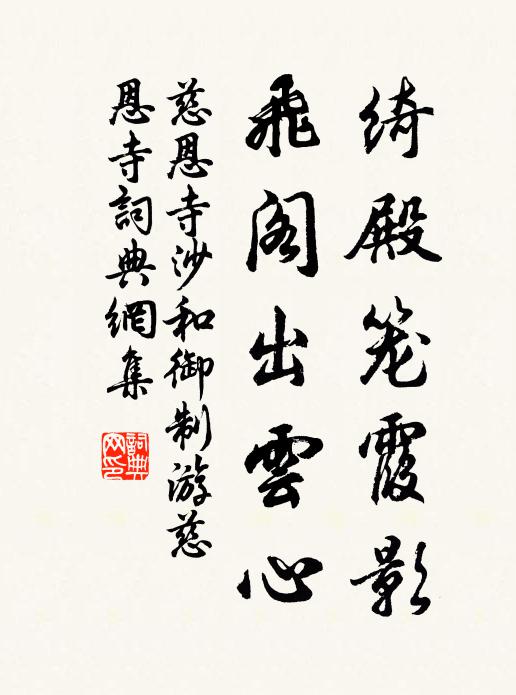 绮殿笼霞影
飛阁出雲心
慈恩寺沙和御制游慈
恩寺詞典網集
詞典网印